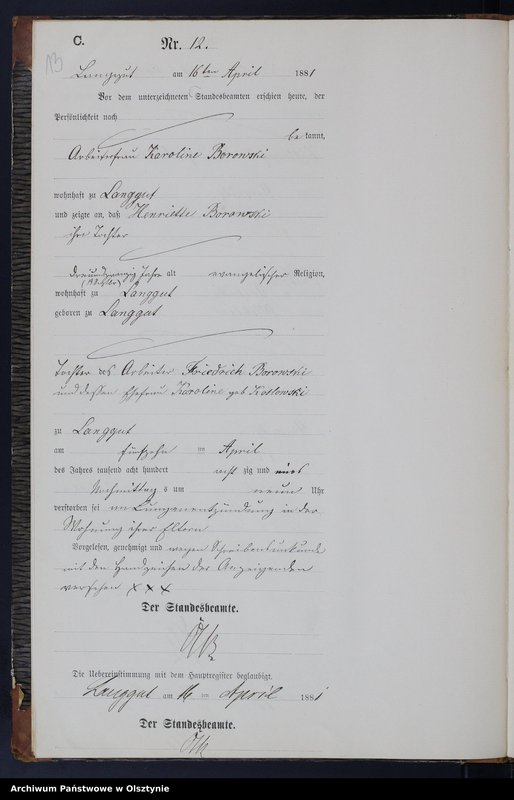 C.
Nr. 12.
13
Langgut am 16ten April 1881
Vor dem unterzeichneten Standesbeamten erschien heute, der
Persönlichkeit nach
bekannt,
Arbeiterfrau Karoline Borowski
wohnhaft zu Langgut
und zeigte an, daß Henriette Borowski
ihre Tochter
dreiundzwanzig Jahre alt evangelischer Religion,
wohnhaft zu Langgut
geboren zu Langgut
Tochter des Arbeiter Friedrich Borowski
und dessen Ehefrau Karoline geb Koslowski
zu Langgut
am fünfzehn ten April
des Jahres tausend acht hundert acht zig und eins
Nachmittags um neun Uhr
verstorben sei an Lungenentzündung in der
Wohnung ihrer Eltern
Vorgelesen, genehmigt und wegen Schreibensunkunde
mit den Handzeichen der Anzeigenden
versehen x x x
Der Standesbeamte.
Die Uebereinstimmung mit dem Hauptregister beglaubigt.
Langgut am 16 ten April 1881
Der Standesbeamte.
Archiwum Państwowe w Olsztynie